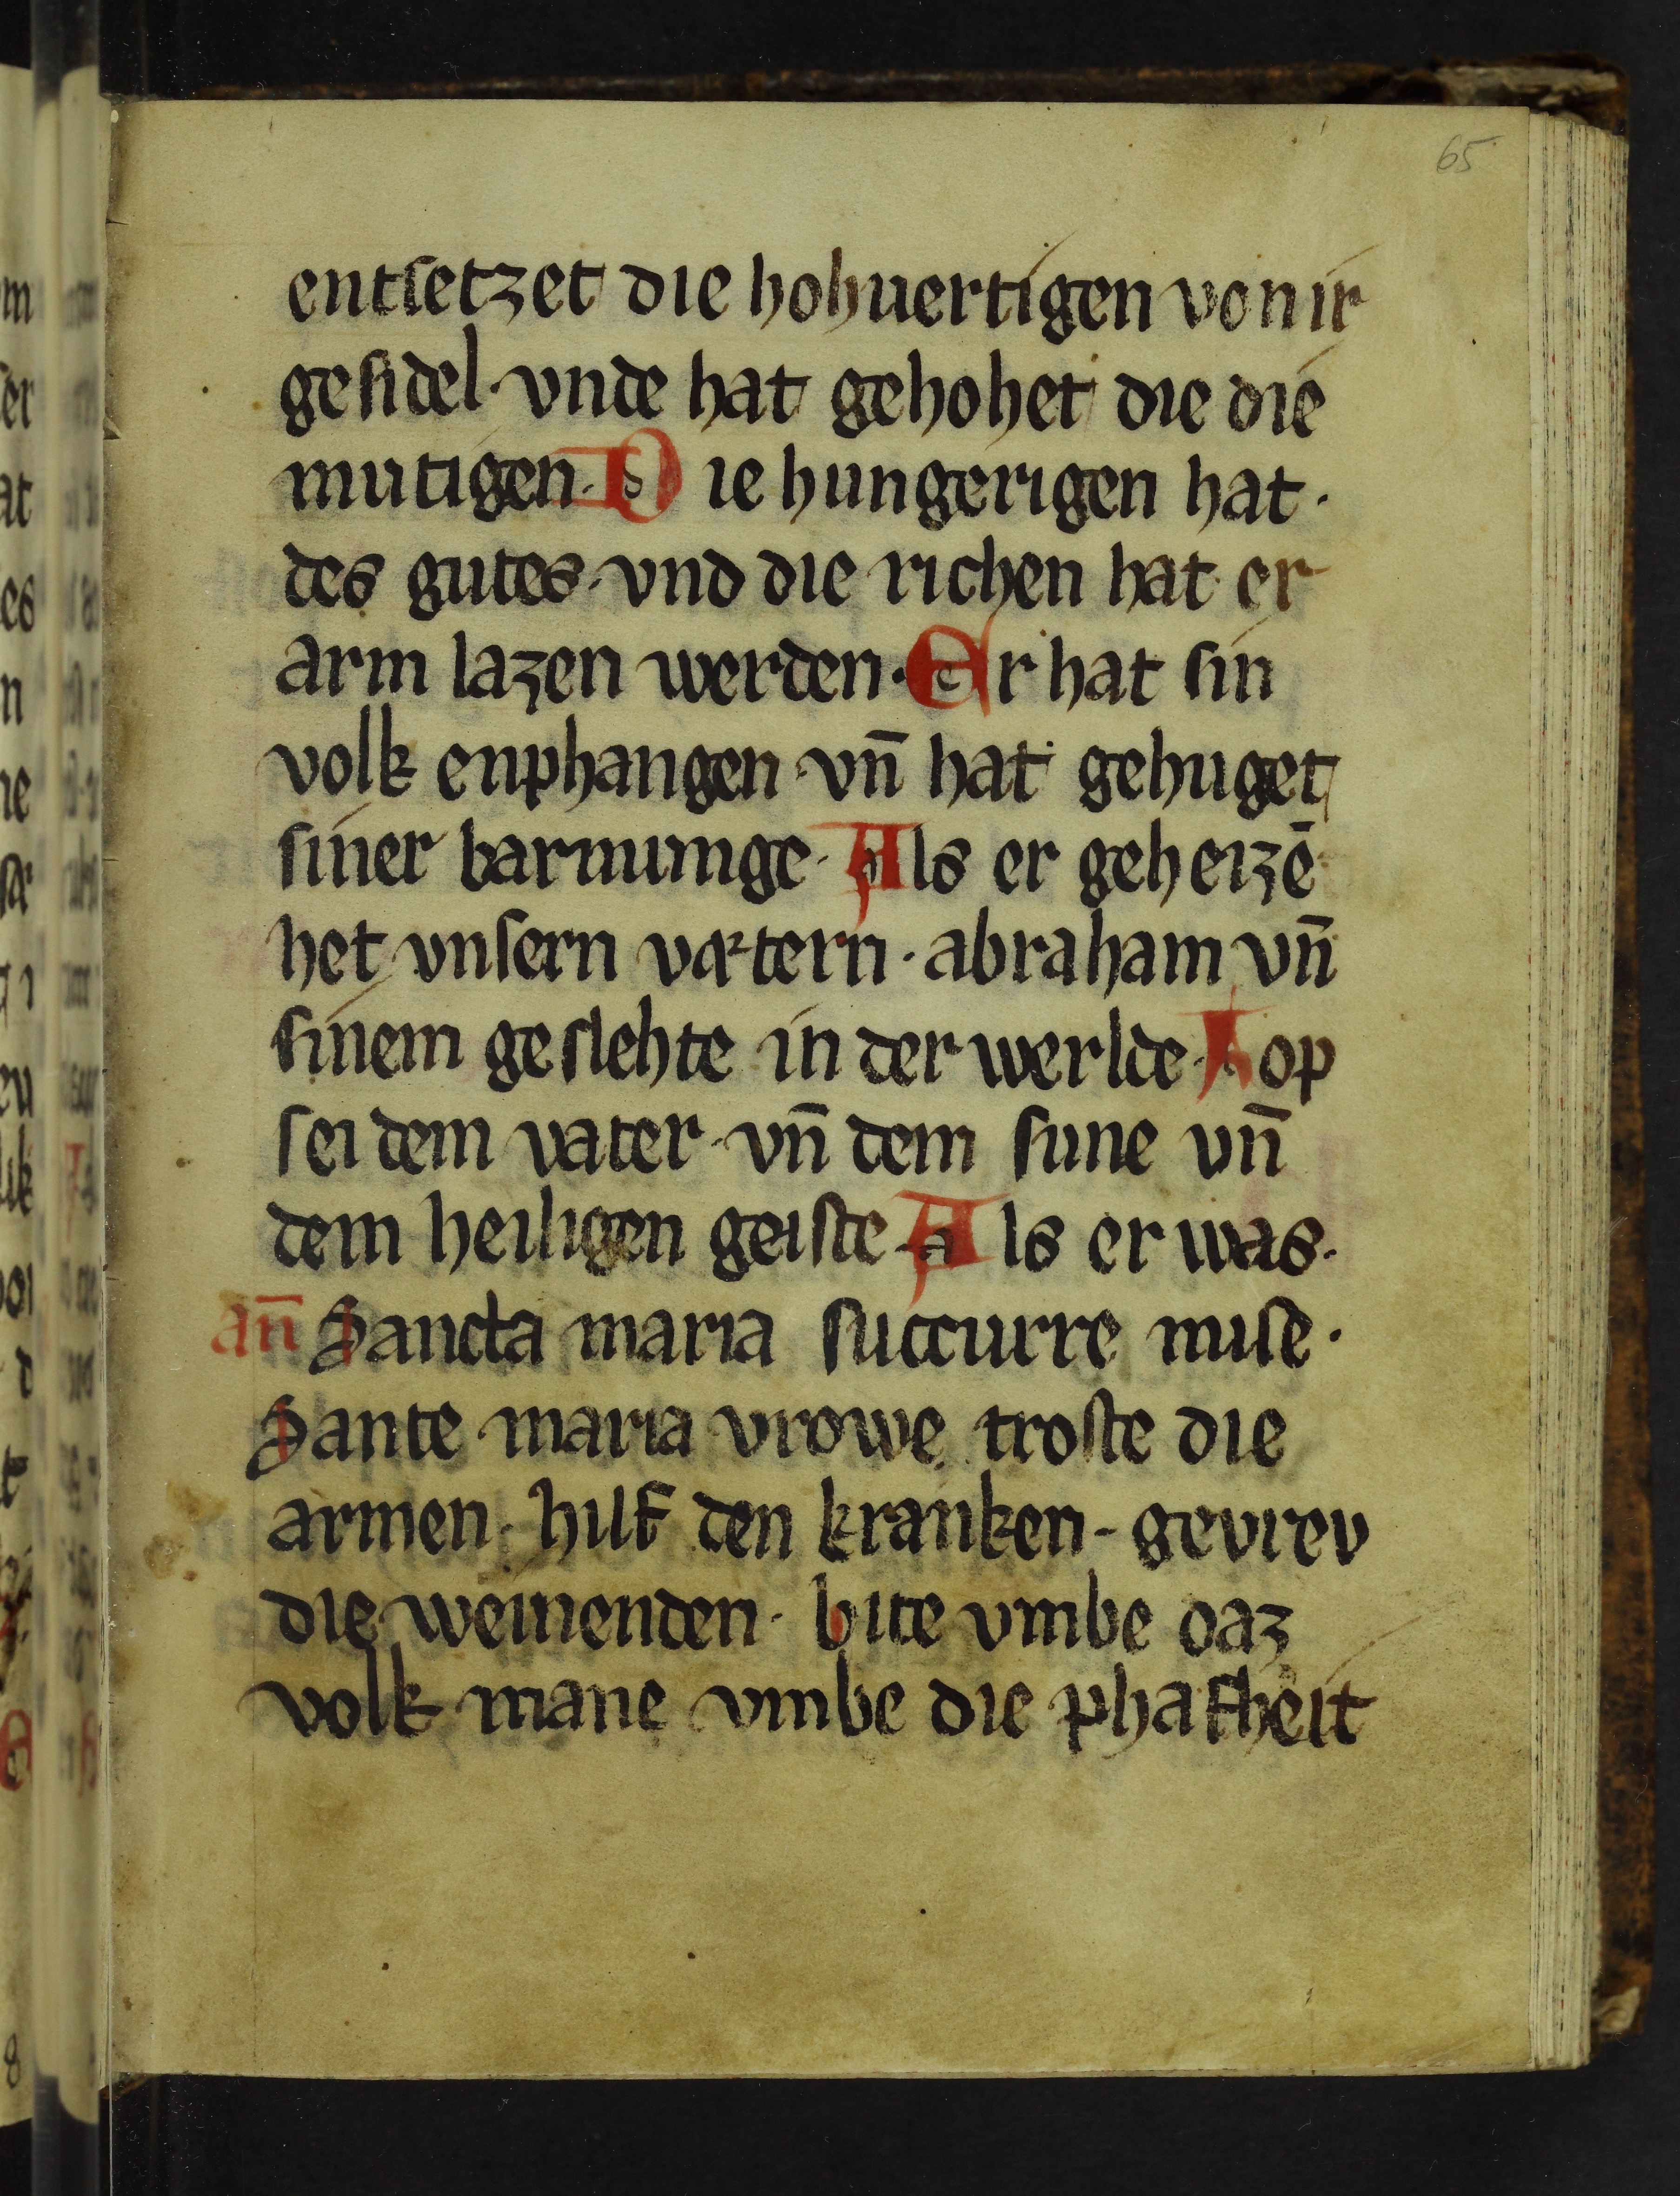 65
entsetzet die hohuertigen von ir
gesidel · vnde hat gehohet die die
mutigen · Die hungerigen hat ·
des gutes · vnd die richen hat er
arm lazen werden · Er hat sin
volk enphangen · vn̄ hat gehuget
siner barmunge · Als er geheizē
het vnsern vatern · abraham vn̄
sinem geslehte in der werlde · Lop
sei dem vater · vn̄ dem sune vn̄
dem heiligen geiste · Als er was ·
an̄ Sancta maria succurre mise ·
Sante maria vrowe troste die
armen · hilf den kranken · gevrev
die weinenden · bite vmbe daz
volk mane vmbe die phafheit